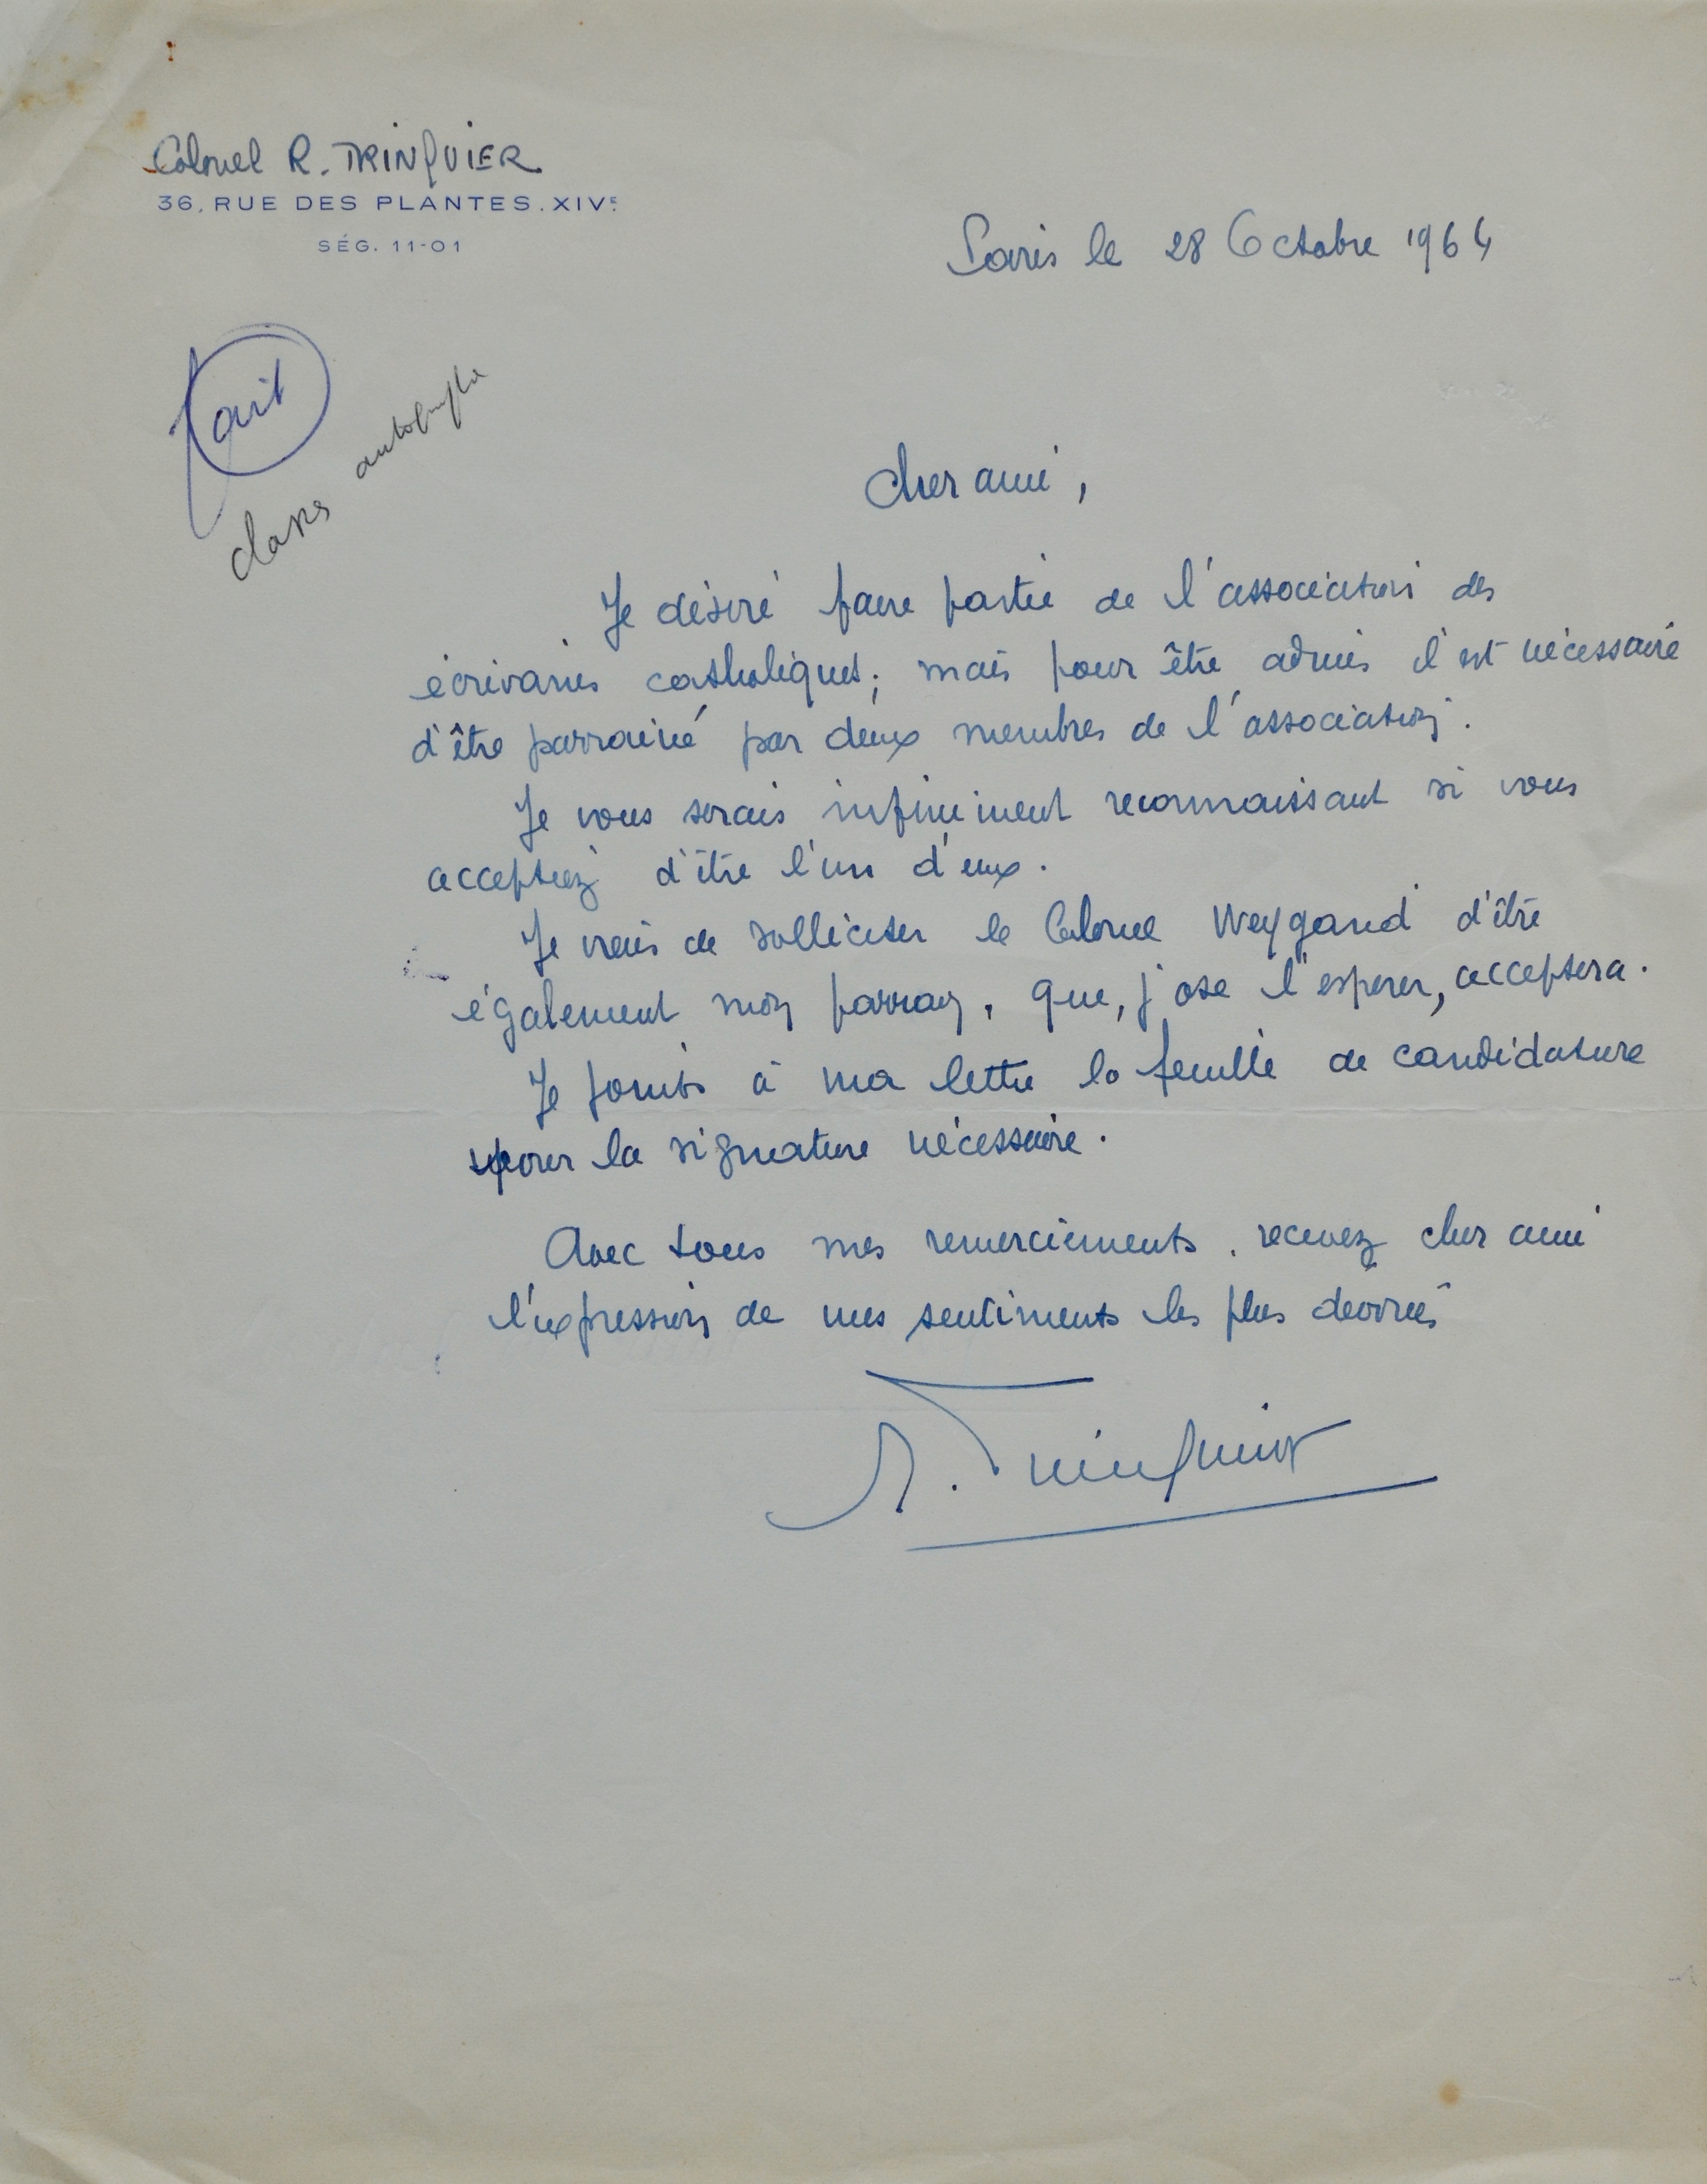 Colonel R. TRINQUIER
36, RUE DES PLANTES. XIVE
SÉG. 11-01
Paris le 28 Octobre 1964
fait
class autographe
Cher ami,
Je désire faire partie de l'association des
écrivains catholiques; mais pour être admis il est nécessaire
d'être parrainé par deux membres de l'association.
Je vous serais infiniment reconnaissant si vous
acceptiez d'être l'un d'eux.
Je viens de solliciter le Colonel Weygand d'être
également mon parrain, que, j'ose l'espérer, acceptera.
Je joints à ma lettre la feuille de candidature
pour la signature nécessaire.
Avec tous mes remerciements, recevez cher ami
l'expression de mes sentiments les plus dévoués
R. Trinquier